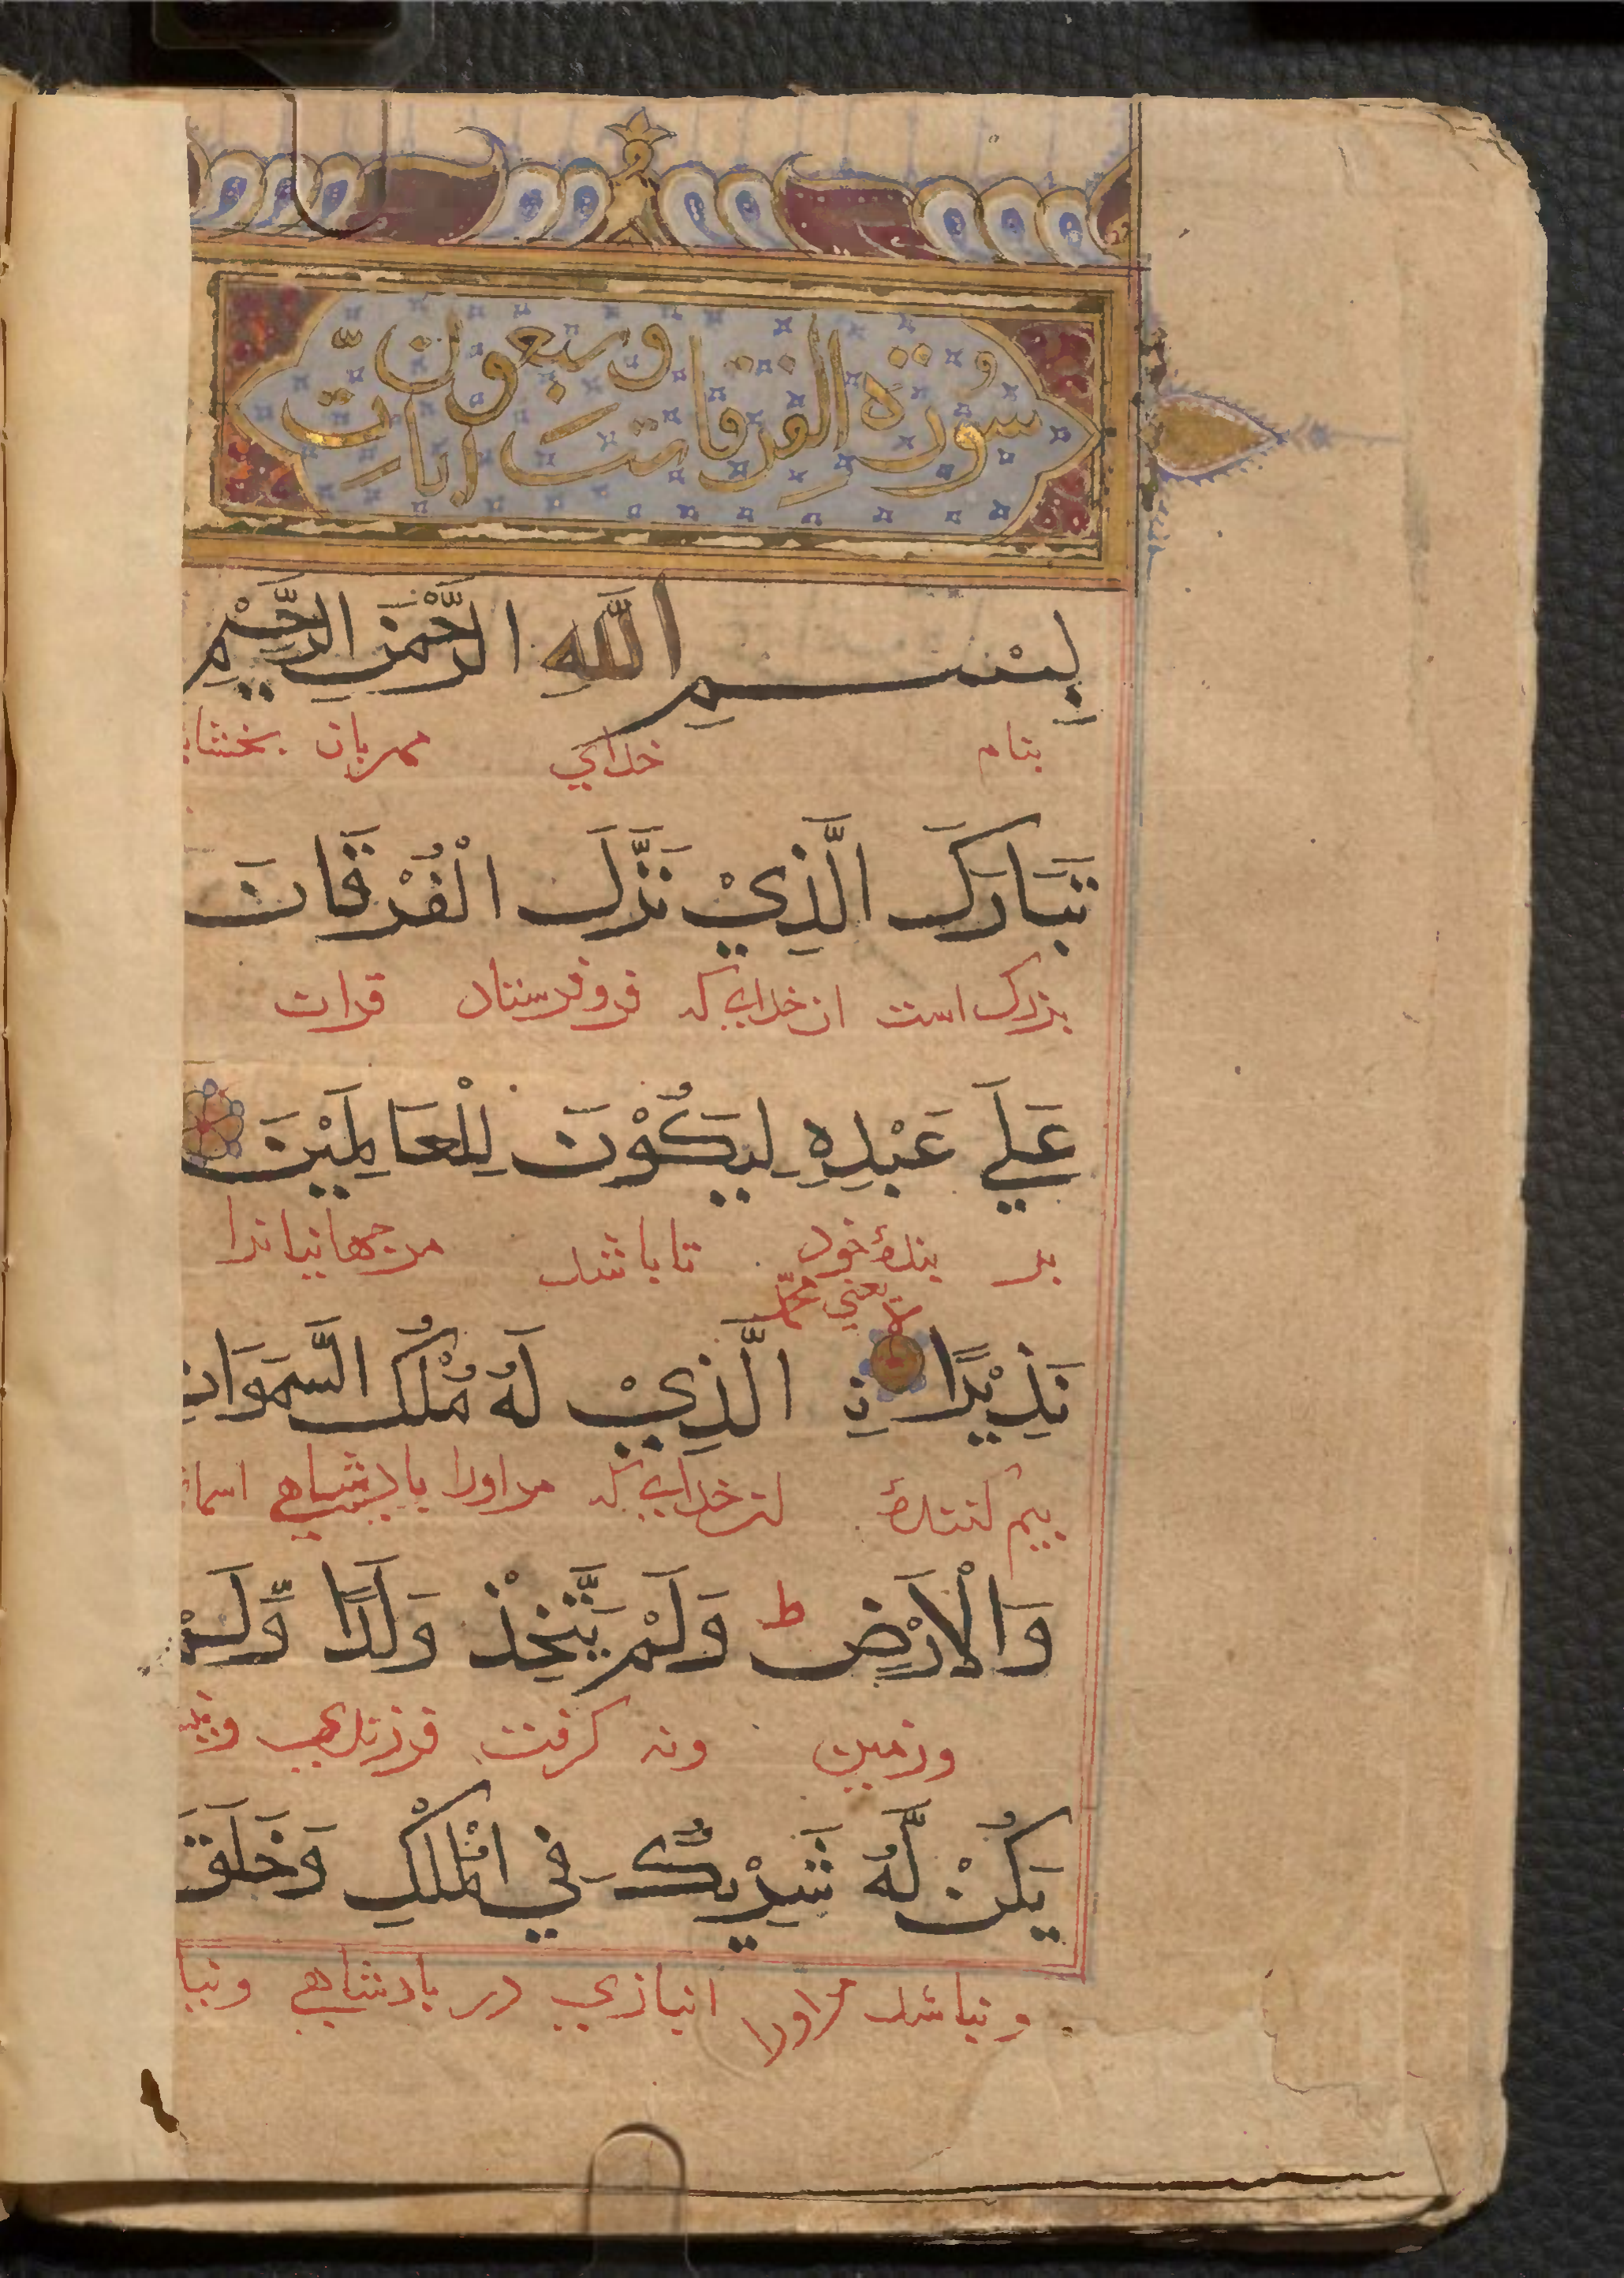 سورة الفرقان ست وسبعون اية
بِسْمِ اللَّهِ الرَّحْمَنِ الرَّحِيْمِ
بنام خداي مهربان
تَبَارَكَ الَّذِيْ نَزَّلَ الْفُرْقَانَ
بزرك است ان خدايكه فروفرستاد قران
عَلَى عَبْدِهِ لِيَكُوْنَ لِلْعَالَمِيْنَ
بر بندۀ خود تا باشد مر جهانيانرا
يعني محمّد
نَذِيْرًا نِ الَّذِيْ لَهُ مُلْكُ السَّمَوَاتِ
بيم كنندۀ ان خدايكه مر اورا پادشاهي
وَالْاَرْضِ ط وَلَمْ يَتَّخِذْ وَلَدًا وَّلَمْ
وزمين ونه كرفت فرزندي
يَكُنْ لَّهُ شَرِيْكٌ فِي الْمُلْكِ وَخَلَقَ
ونباشد مر اورا انبازي در پادشاهي